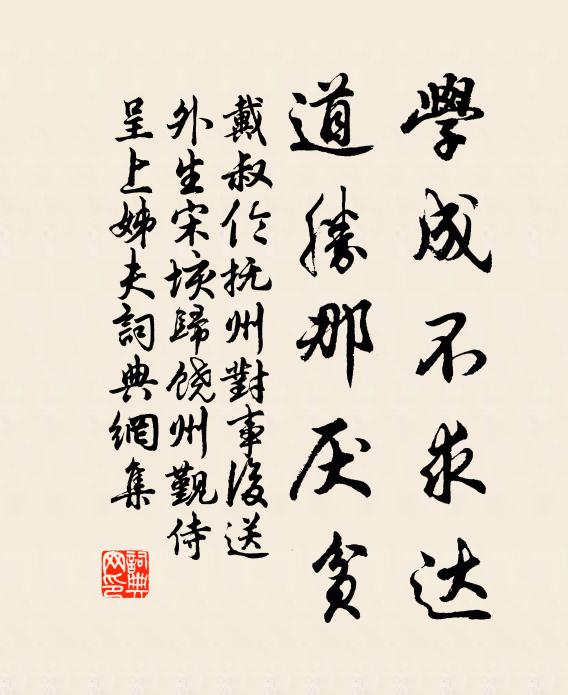 學成不求达
道勝那厌貧
戴叔伦抚州對事後送
外生宋垓歸饶州觐侍
呈上姊夫詞典網集
詞典网印